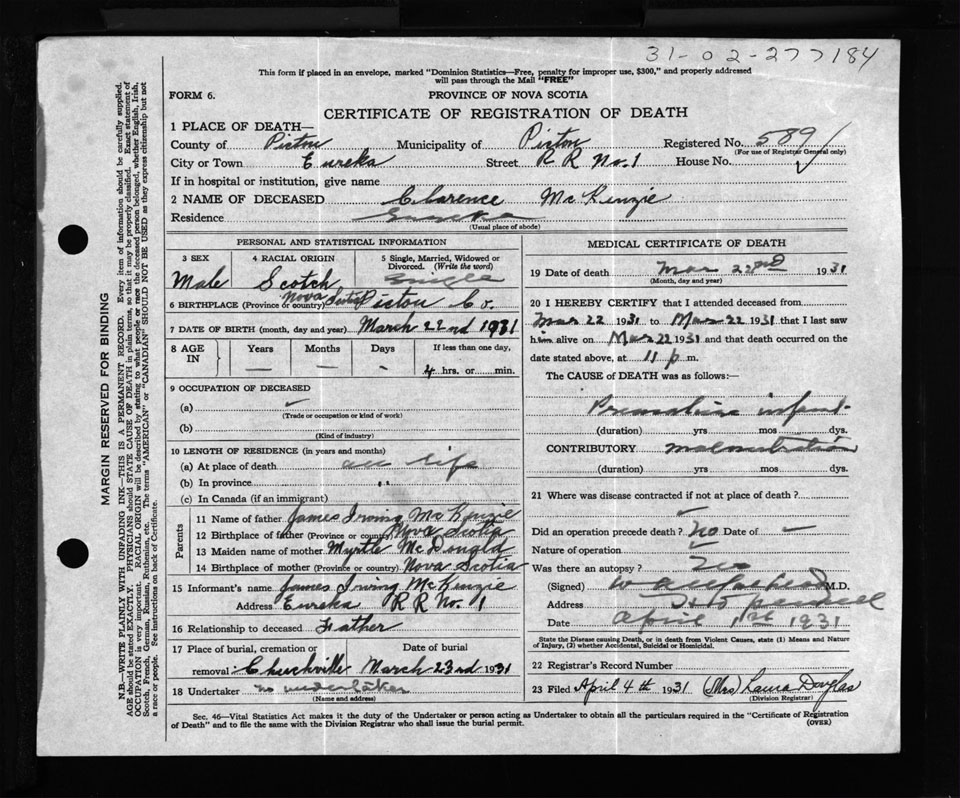 31-02-277184
This form if placed in an envelope, marked "Dominion Statistics—Free, penalty for improper use, $300," and properly addressed
will pass through the Mail "FREE"
FORM 6.
PROVINCE OF NOVA SCOTIA
CERTIFICATE OF REGISTRATION OF DEATH
1 PLACE OF DEATH—
County of Pictou Municipality of Pictou Registered No. 589
(For use of Registrar General only)
City or Town Eureka Street R R No. 1 House No.
If in hospital or institution, give name
2 NAME OF DECEASED Clarence McKenzie
Residence Eureka
(Usual place of abode)
PERSONAL AND STATISTICAL INFORMATION
3 SEX 4 RACIAL ORIGIN 5 Single, Married, Widowed or Divorced. (Write the word)
Male Scotch Single
6 BIRTHPLACE (Province or country) Nova Scotia Pictou Co.
7 DATE OF BIRTH (month, day and year) March 22nd 1931
8 AGE IN Years Months Days If less than one day,
— — - 4 hrs. or min.
9 OCCUPATION OF DECEASED
(a)
(Trade or occupation or kind of work)
(b)
(Kind of industry)
10 LENGTH OF RESIDENCE (in years and months)
(a) At place of death all life
(b) In province "
(c) In Canada (if an immigrant)
Parents
11 Name of father James Irving McKenzie
12 Birthplace of father (Province or country) Nova Scotia
13 Maiden name of mother Myrtle McDonald
14 Birthplace of mother (Province or country) Nova Scotia
15 Informant's name James Irving McKenzie
Address Eureka R R No. 1
16 Relationship to deceased Father
17 Place of burial, cremation or Date of burial
removal: Churchville March 23rd 1931
18 Undertaker no undertaker
(Name and address)
MEDICAL CERTIFICATE OF DEATH
19 Date of death Mar 22nd 1931
(Month, day and year)
20 I HEREBY CERTIFY that I attended deceased from
Mar 22 1931 to Mar 22 1931 that I last saw
him alive on Mar 22 1931 and that death occurred on the
date stated above, at 11 p m.
The CAUSE of DEATH was as follows:—
Premature infant
(duration) yrs mos dys.
CONTRIBUTORY malnutrition
(duration) yrs mos dys.
21 Where was disease contracted if not at place of death?
Did an operation precede death? No Date of —
Nature of operation —
Was there an autopsy? No
(Signed) M.D.
Address
Date April 1st 1931
State the Disease causing Death, or in death from Violent Causes, state (1) Means and Nature
of Injury, (2) whether Accidental, Suicidal or Homicidal.
22 Registrar's Record Number
23 Filed April 4th 1931 (Mrs) Laura Douglas
(Division Registrar)
Sec. 46—Vital Statistics Act makes it the duty of the Undertaker or person acting as Undertaker to obtain all the particulars required in the "Certificate of Registration
of Death" and to file the same with the Division Registrar who shall issue the burial permit. (OVER)
MARGIN RESERVED FOR BINDING
N.B.—WRITE PLAINLY WITH UNFADING INK—THIS IS A PERMANENT RECORD. Every item of information should be carefully supplied.
AGE should be stated EXACTLY. PHYSICIANS should STATE CAUSE OF DEATH in plain terms, so that it may be properly classified. Exact statement of
OCCUPATION is very important. RACIAL ORIGIN will be described by stating to what people or race the deceased person belonged, whether English, Irish,
Scotch, French, German, Russian, Ruthenian, etc. The terms "AMERICAN" or "CANADIAN" SHOULD NOT BE USED as they express citizenship but not
a race or people. See instructions on back of Certificate.